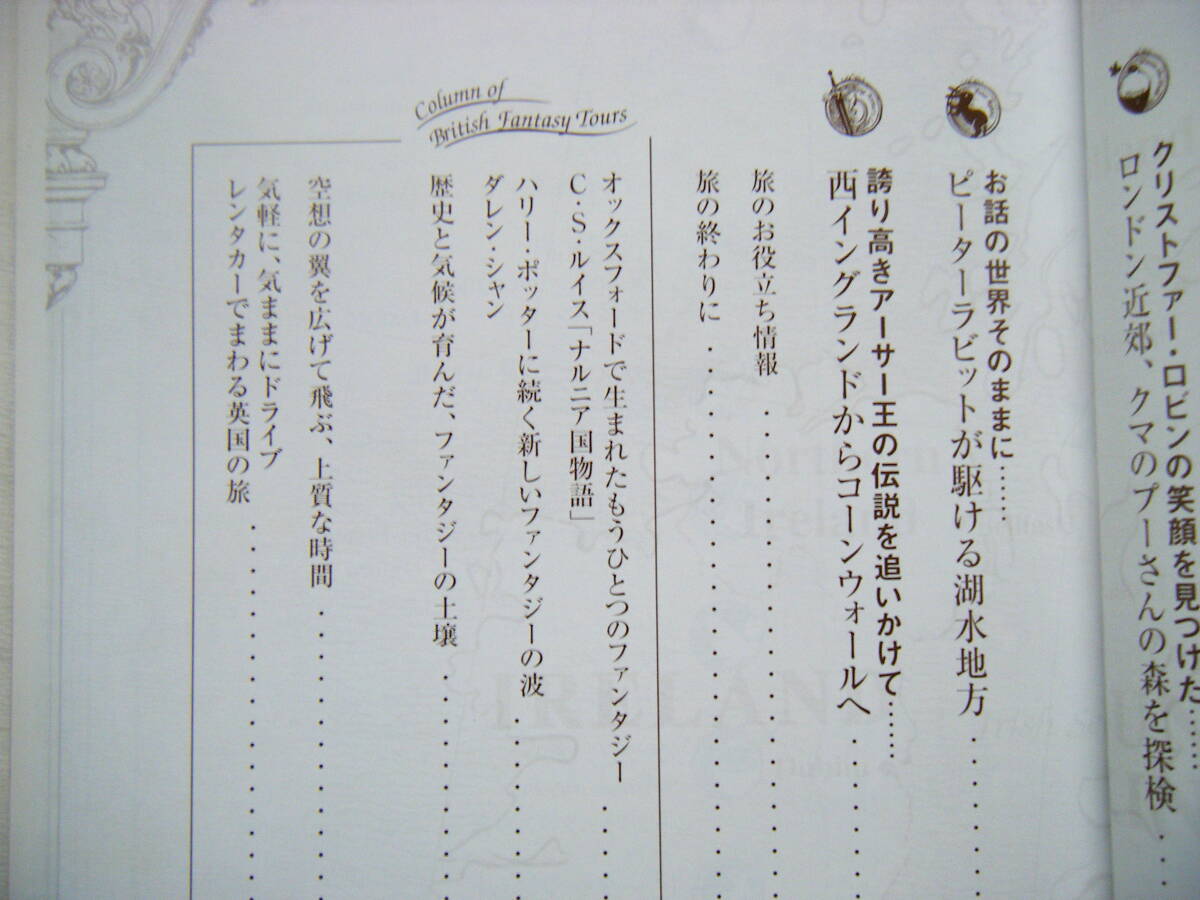 クリストファー・ロビンの笑顔を見つけた……
ロンドン近郊、クマのプーさんの森を探検
お話の世界そのままに……
ピーターラビットが駆ける湖水地方
誇り高きアーサー王の伝説を追いかけて……
西イングランドからコーンウォールへ
旅のお役立ち情報
旅の終わりに
Column of
British Fantasy Tours
オックスフォードで生まれたもうひとつのファンタジー
C・S・ルイス「ナルニア国物語」
ハリー・ポッターに続く新しいファンタジーの波
ダレン・シャン
歴史と気候が育んだ、ファンタジーの土壌
空想の翼を広げて飛ぶ、上質な時間
気軽に、気ままにドライブ
レンタカーでまわる英国の旅
Northern
Ireland
IRELAND
Dublin